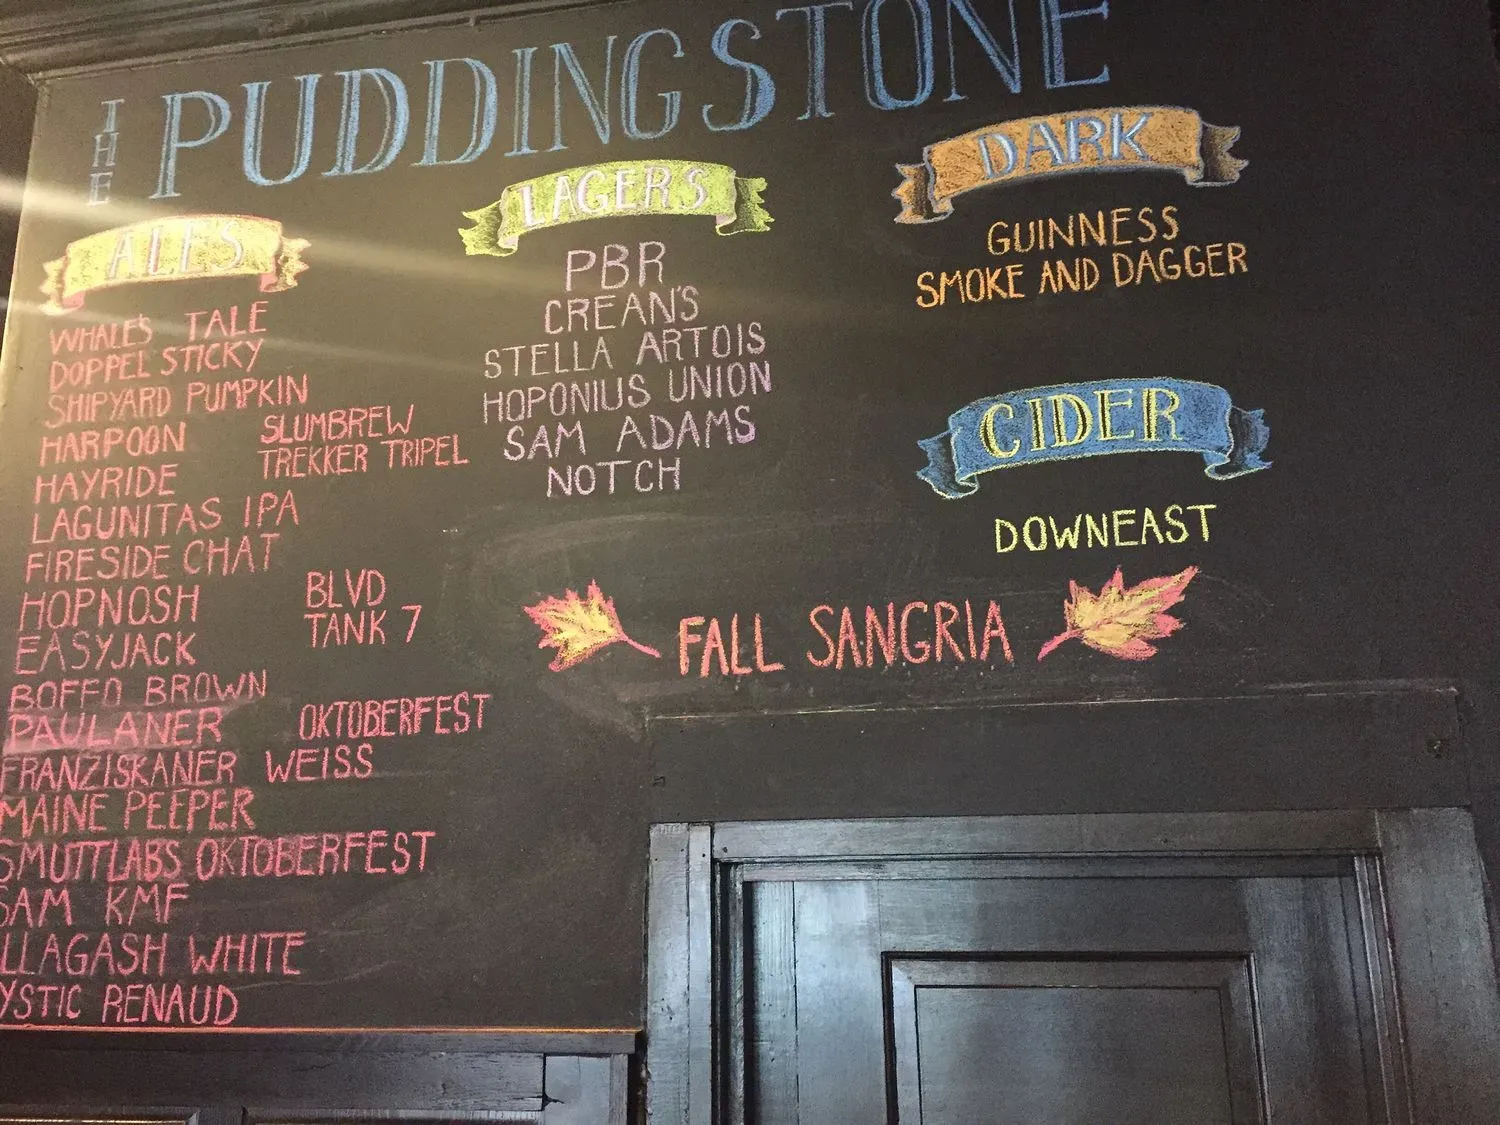 THE PUDDINGSTONE
ALES
WHALE'S TALE
DOPPEL STICKY
SHIPYARD PUMPKIN
HARPOON
HAYRIDE
SLUMBREW
TREKKER TRIPEL
LAGUNITAS IPA
FIRESIDE CHAT
HOPNOSH
EASYJACK
BLVD
TANK 7
BOFFO BROWN
PAULANER OKTOBERFEST
FRANZISKANER WEISS
MAINE PEEPER
SMUTTLABS OKTOBERFEST
SAM KMF
LLAGASH WHITE
YSTIC RENAUD
LAGERS
PBR
CREAN'S
STELLA ARTOIS
HOPONIUS UNION
SAM ADAMS
NOTCH
DARK
GUINNESS
SMOKE AND DAGGER
CIDER
DOWNEAST
FALL SANGRIA